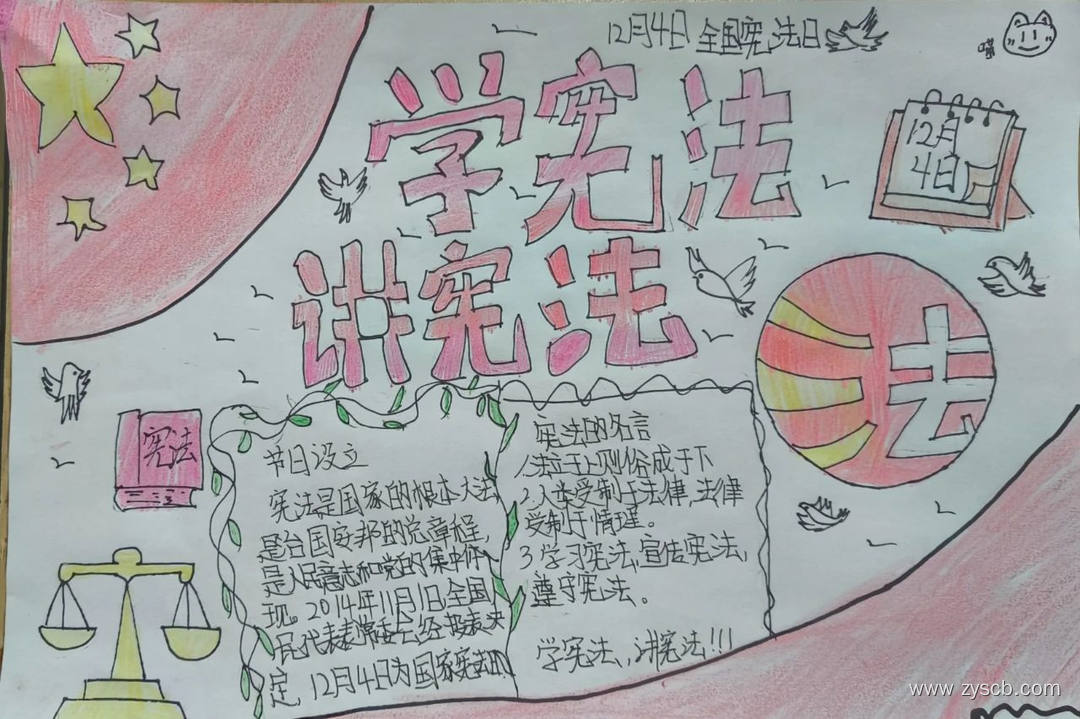 12月4日 全国宪法日
喵
学宪法
12月
4日
讲宪法
法
宪法
节日设立
宪法是国家的根本大法
是治国安邦的总章程,
是人民意志和党的集中体
现。2014年11月1日全国
民代表常委会经表决
定, 12月4日为国家宪法
宪法的名言
1.法立于上则俗成于下
2.人类受制于法律,法律
受制于情理。
3.学习宪法,宣传宪法,
遵守宪法。
学宪法,讲宪法!!!
www.zyscb.com